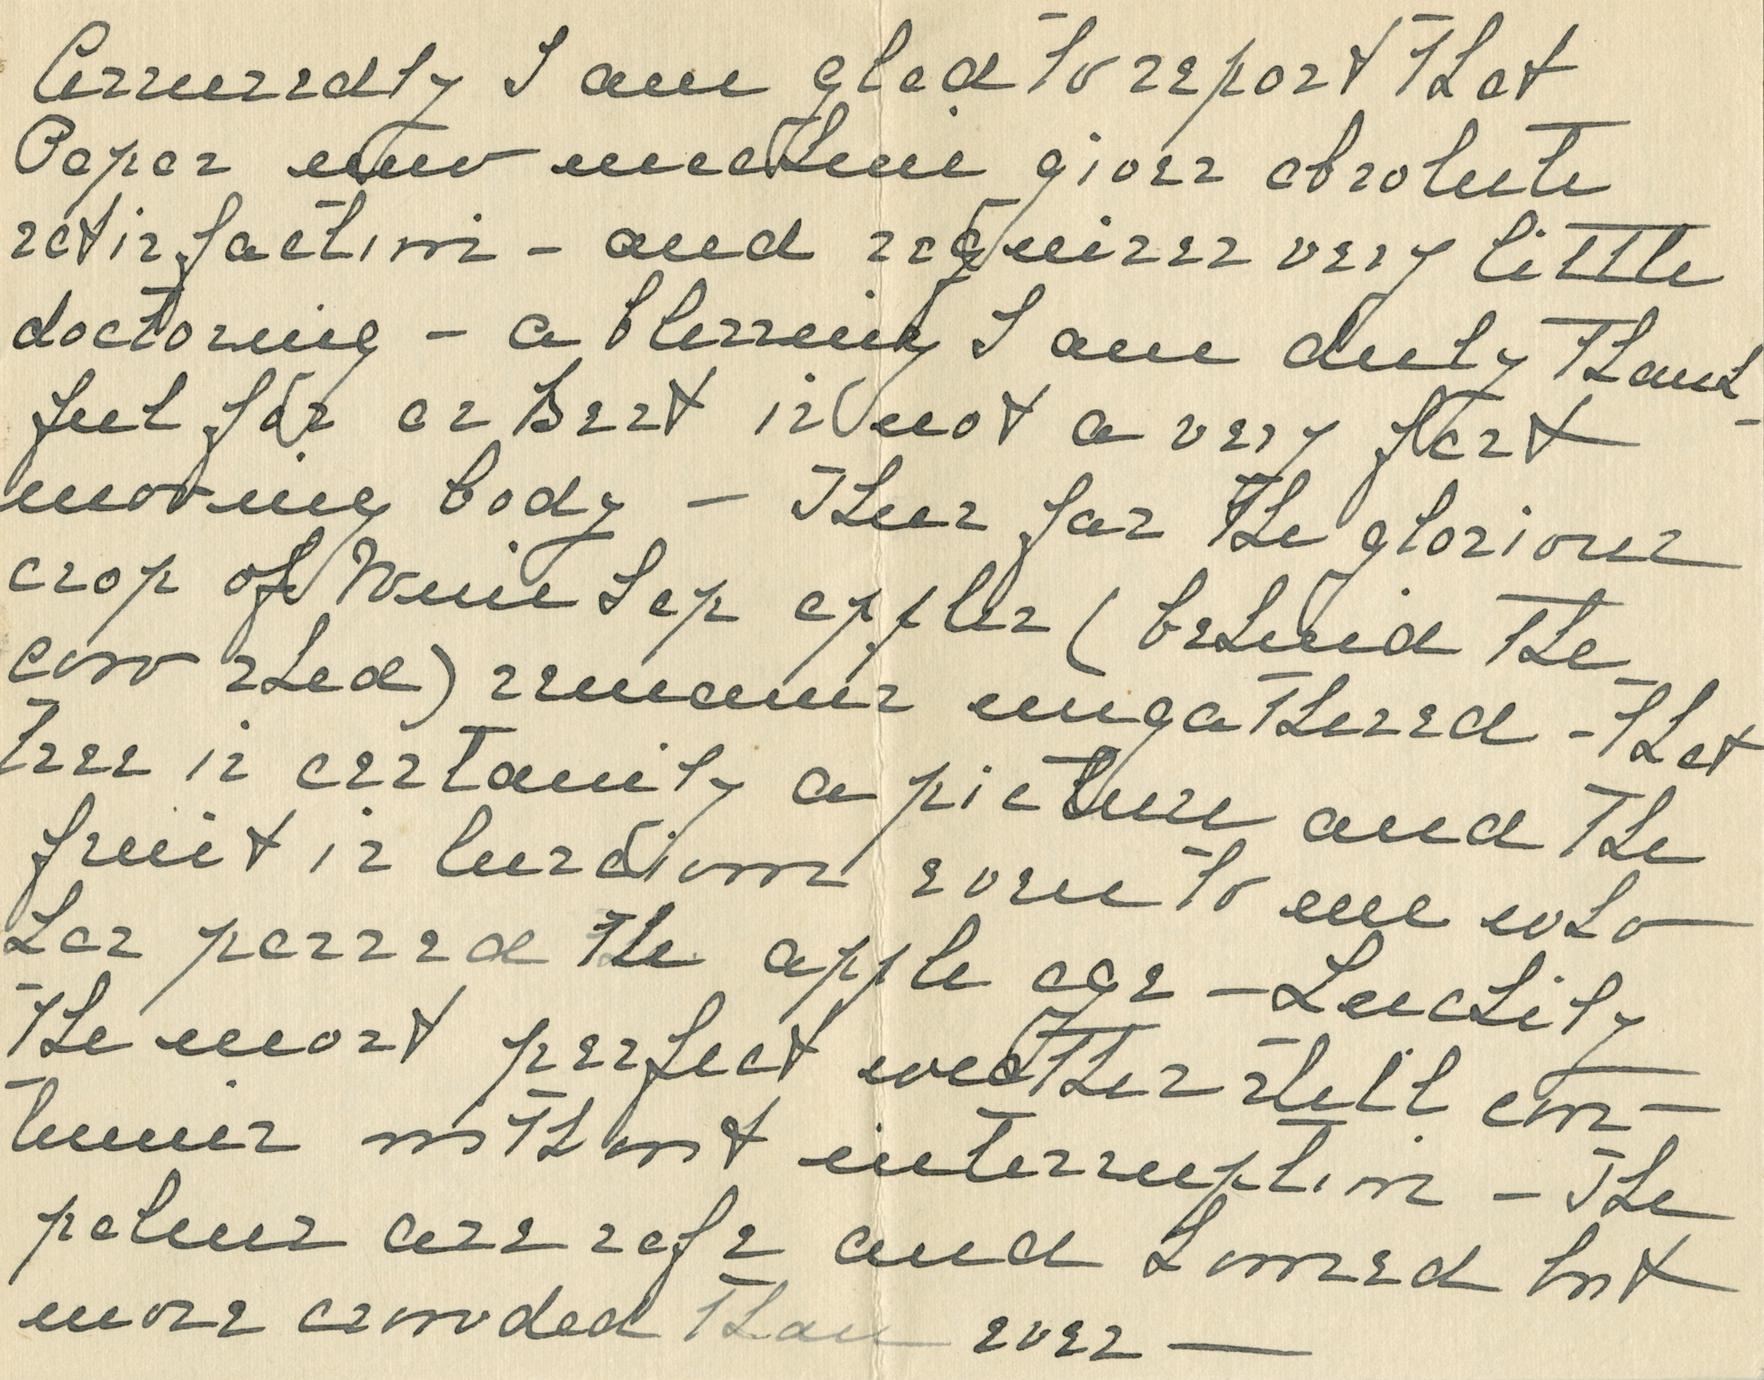 Assuredly I am glad to report that
Papas new machine gives absolute
satisfaction – and requires very little
doctoring – a blessing I am duly thank-
ful for as Bert is not a very fast
moving body – Thus far the glorious
crop of Wine Sap apples (behind the
cow shed) remains ungathered – that
tree is certainly a picture and the
fruit is luscious even to me who
has passed the apple age – Luckily
the most perfect weather still con-
tinues without interruption – The
palms are safe and housed but
more crowded than ever –